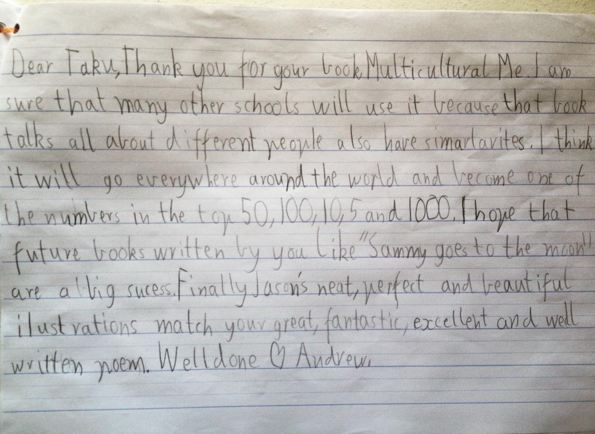 Dear Taku, Thank you for your book Multicultural Me. I am
sure that many other schools will use it because that book
talks all about different people also have simartarites. I think
it will go everywhere around the world and become one of
the numbers in the top 50, 100, 10, 5 and 1000. I hope that
future books written by you like "Sammy goes to the moon"
are a big sucess. Finally Jason's neat, perfect and beautiful
ilustrations match your great, fantastic, excellent and well
written poem. Well done ♡ Andrew.